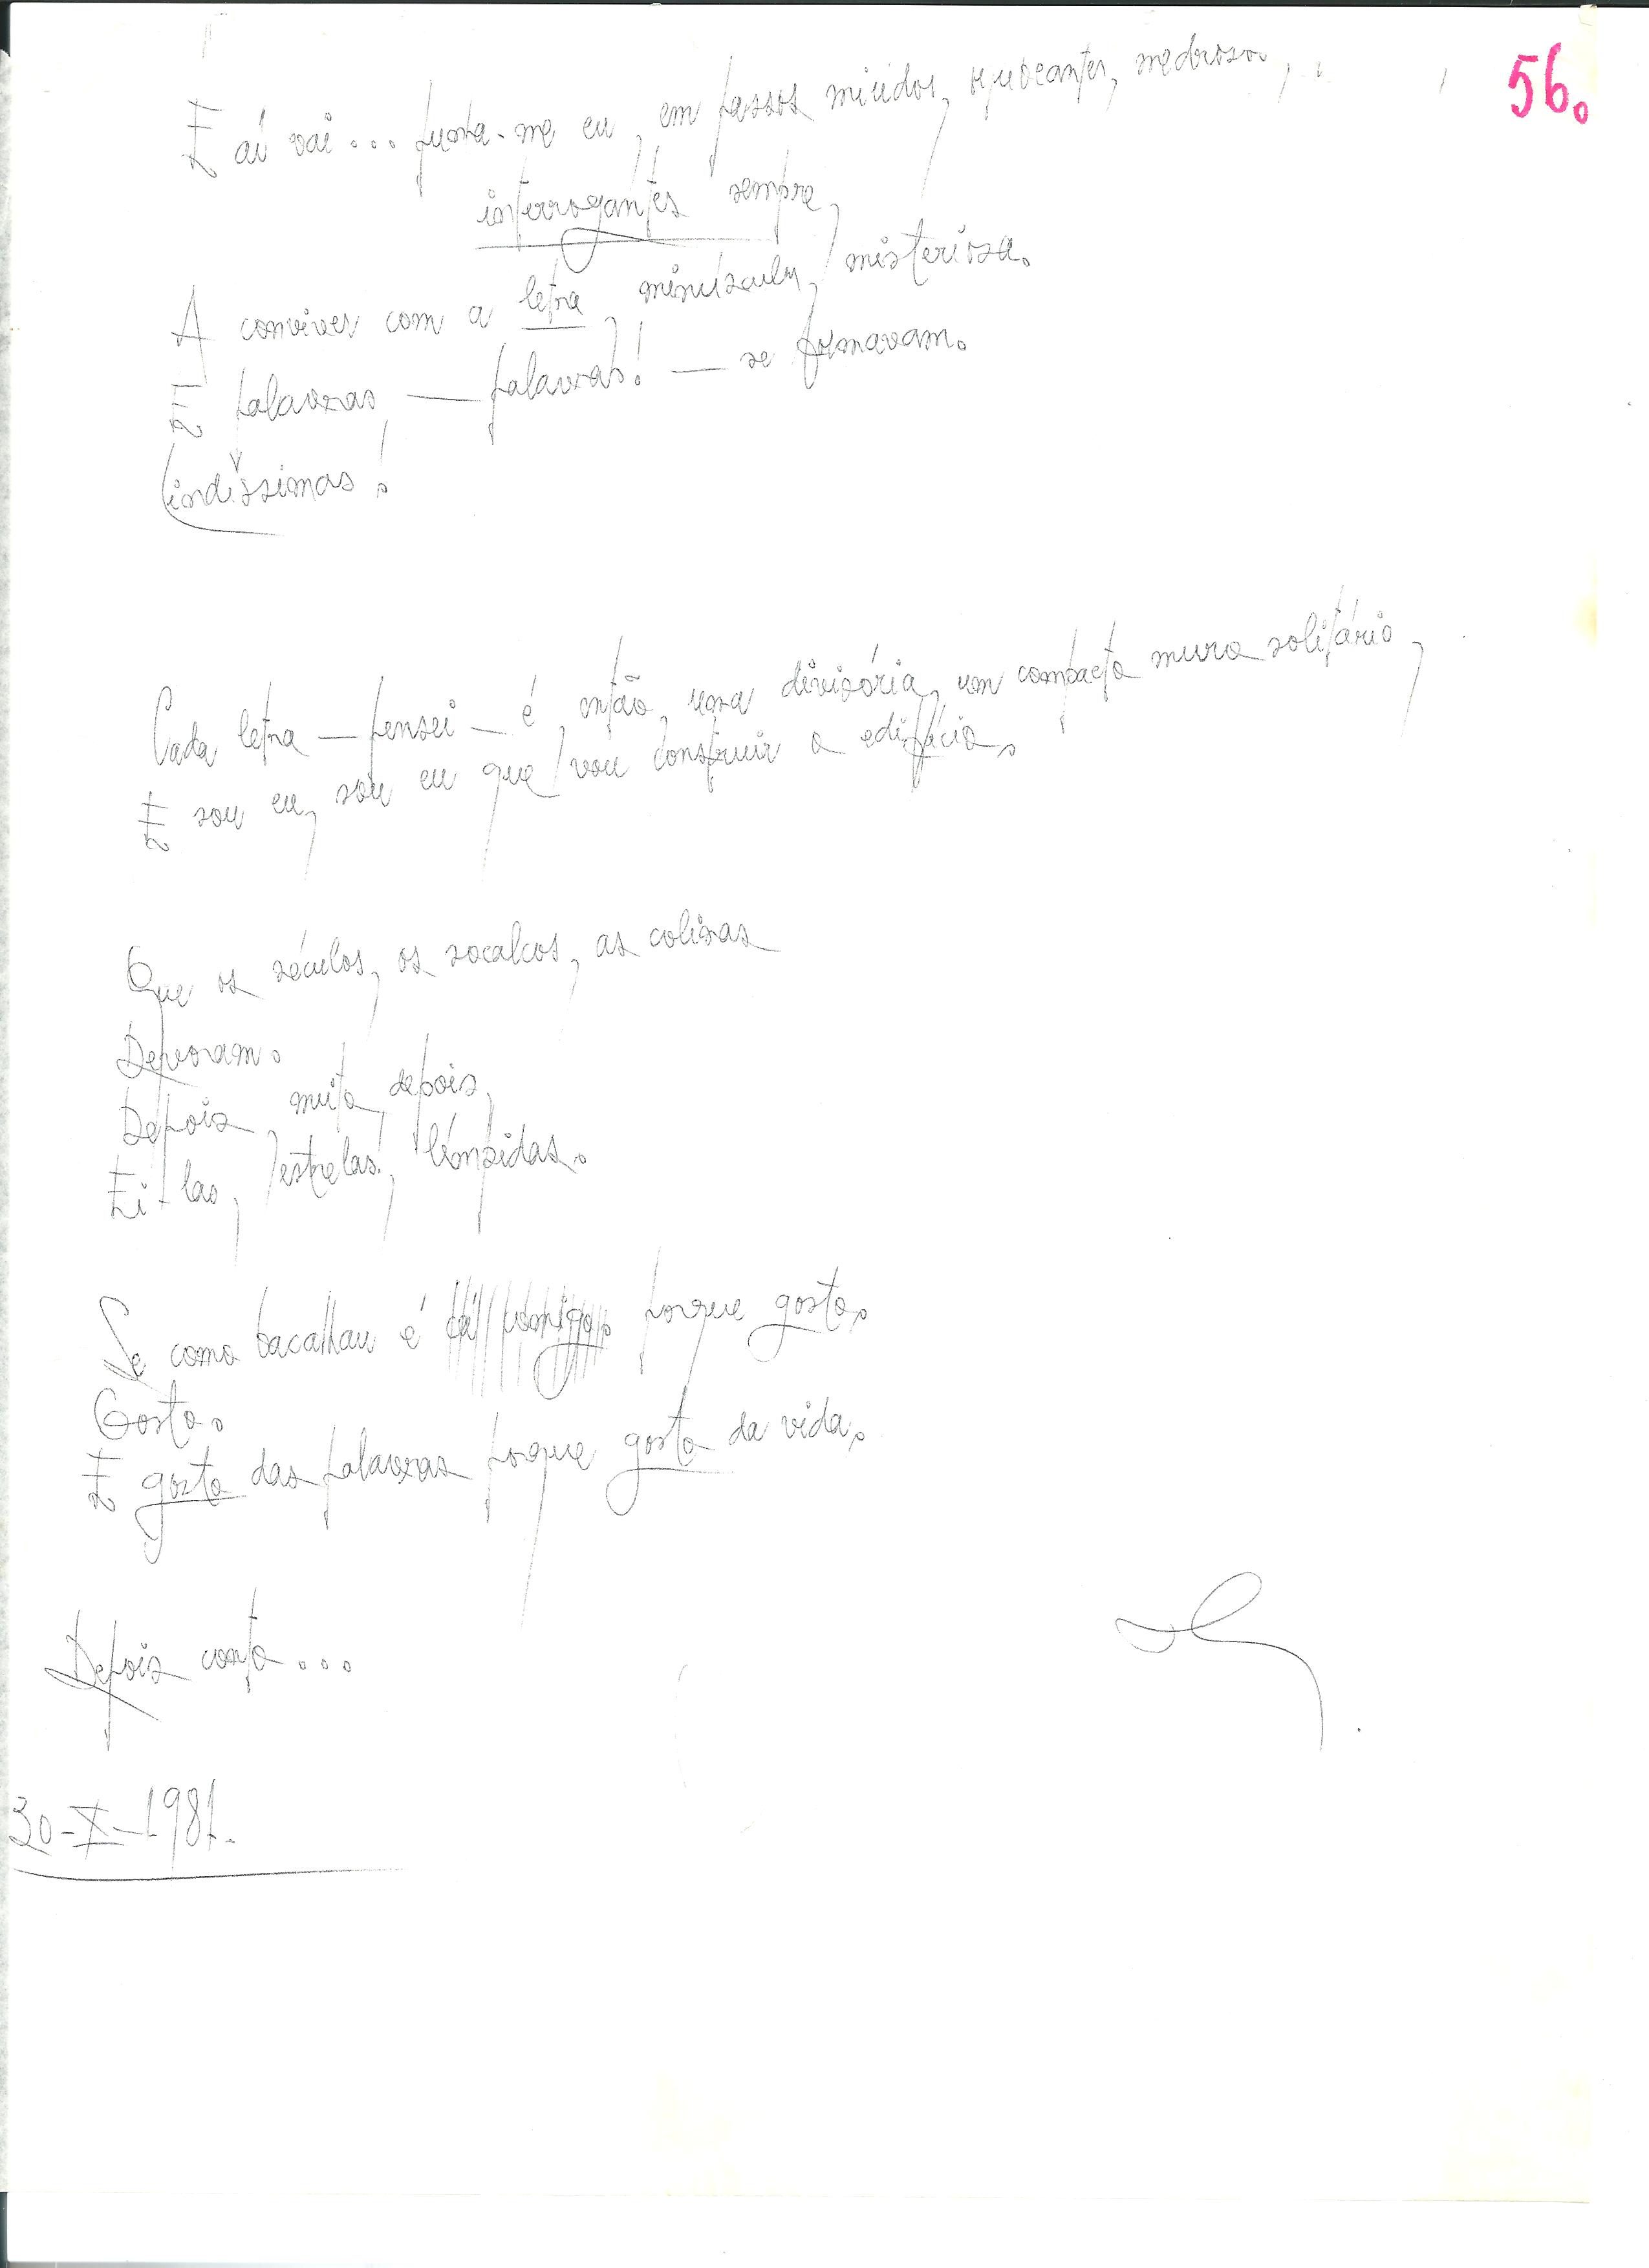 56.
E aí vai... punha-me eu, em passos miúdos, titubeantes, medrosos,
interrogantes sempre,
A conviver com a letra, minúscula, misteriosa.
E palavras, — palavras! — se formavam.
lindíssimas!
Cada letra — pensei — é, então, uma divisória, um compacto muro solitário,
E sou eu, sou eu que vou construir o edifício.
Que os séculos, os socalcos, as colinas
Devoram.
Depois, muito depois,
Ei-las, estrelas, límpidas.
Se como bacalhau é porque gosto.
Gosto.
E gosto das palavras porque gosto da vida.
Depois conto...
30-X-1981.